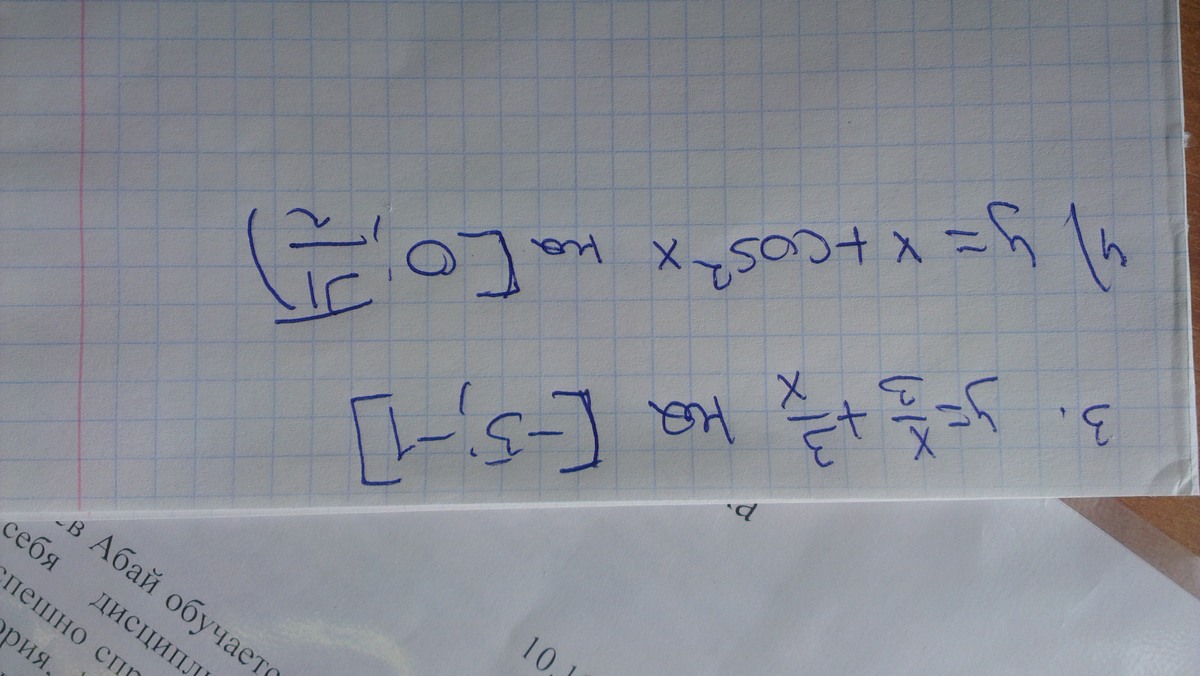 3. y = x/3 + 3/x на [-5; -1]
4) y = x + cos²x на [0; π/2)
в Абай обучаетс
себя дисципл
спешно спр
ория.
10.1